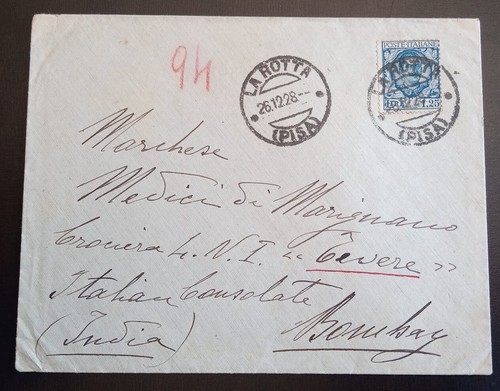 94
LA ROTTA
26.12.28
(PISA)
POSTE ITALIANE
1.25
LA ROTTA
(PISA)
Marchese
Medici di Marignano
Crociera L. N. I. « Tevere »
Italian Consolate
(India) Bombay